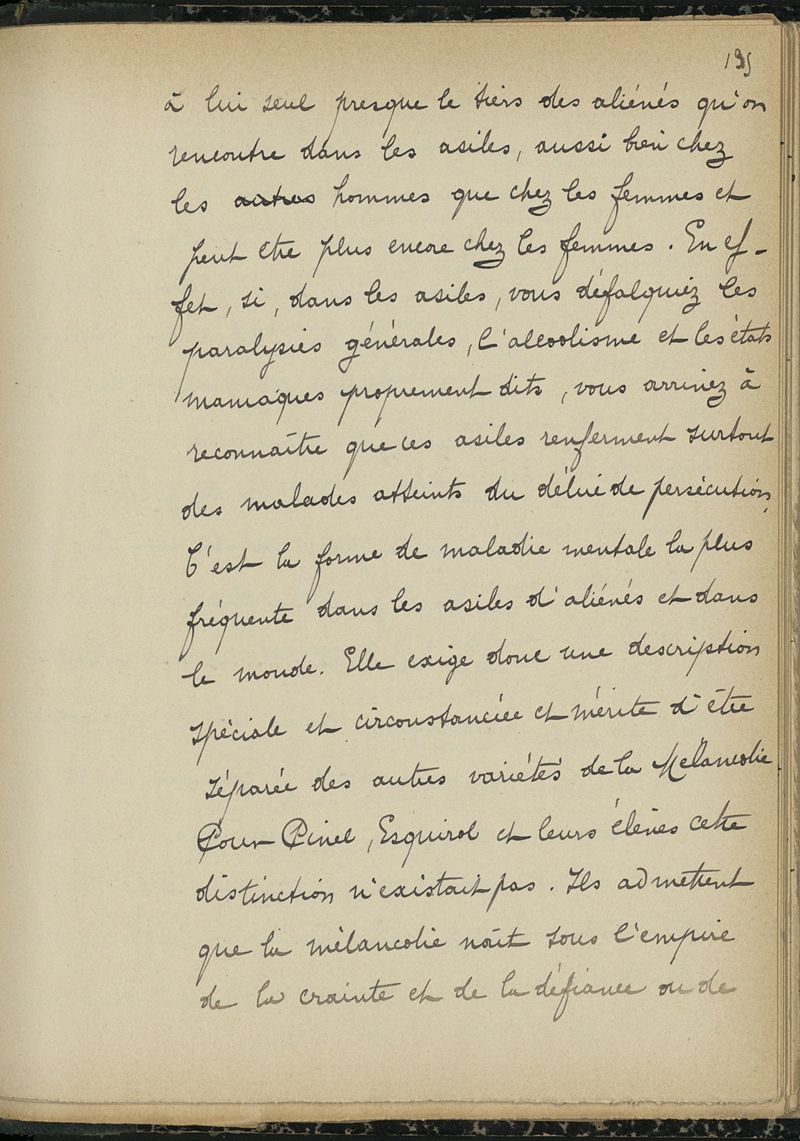 195
à lui seul presque le tiers des aliénés qu'on
rencontre dans les asiles, aussi bien chez
les autres hommes que chez les femmes et
peut etre plus encore chez les femmes. En ef-
fet, si, dans les asiles, vous défalquiez les
paralysies générales, l'alcoolisme et les états
maniaques proprement dits, vous arriviez à
reconnaître que ces asiles renferment surtout
des malades atteints du délire de persécution,
C'est la forme de maladie mentale la plus
fréquente dans les asiles d'aliénés et dans
le monde. Elle exige donc une description
spéciale et circonstanciée et mérite d'être
séparée des autres variétés de la Mélancolie.
Pour Pinel, Esquirol et leurs élèves cette
distinction n'existait pas. Ils admettent
que la mélancolie naît sous l'empire
de la crainte et de la défiance ou de